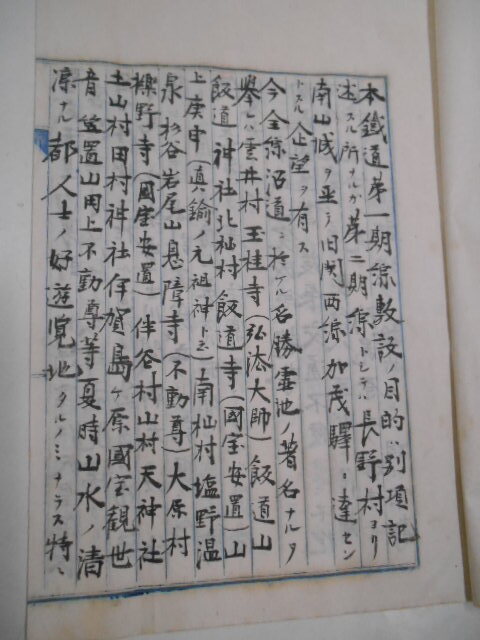 本鐵道第一期線敷設ノ目的ハ別項記
述スル所ナルガ第二期線トシテハ長野村ヨリ
南山城ヲ亙テ旧関西線加茂驛ニ達セン
トスル企望ヲ有ス
今全線沿道ニ於ケル名勝霊地ノ著名ナルヲ
挙レハ雲井村玉桂寺(弘法大師)飯道山
飯道神社北杣村飯道寺(國宝安置)山
上庚申(真鍮ノ元祖神ト云)南杣村塩野温
泉杉谷岩尾山息障寺(不動尊)大原村
櫟野寺(國宝安置)伴谷村山村天神社
土山村田村神社伊賀島ヶ原國宝観世
音笠置山田上不動尊等夏時山水ノ清
凉ナル都人士ノ好遊覧地タルノミナラス特ニ